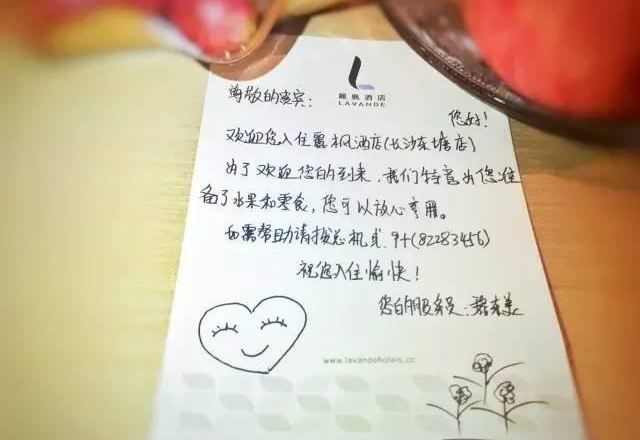 麗枫酒店
LAVANDE
尊敬的贵宾:
您好!
欢迎您入住麗枫酒店(长沙东塘店)
为了欢迎您的到来,我们特意为您准
备了水果和零食,您可以放心享用。
如需帮助请拨总机或9+(82283456)
祝您入住愉快!
您的服务员:
www.lavandehotels.cc